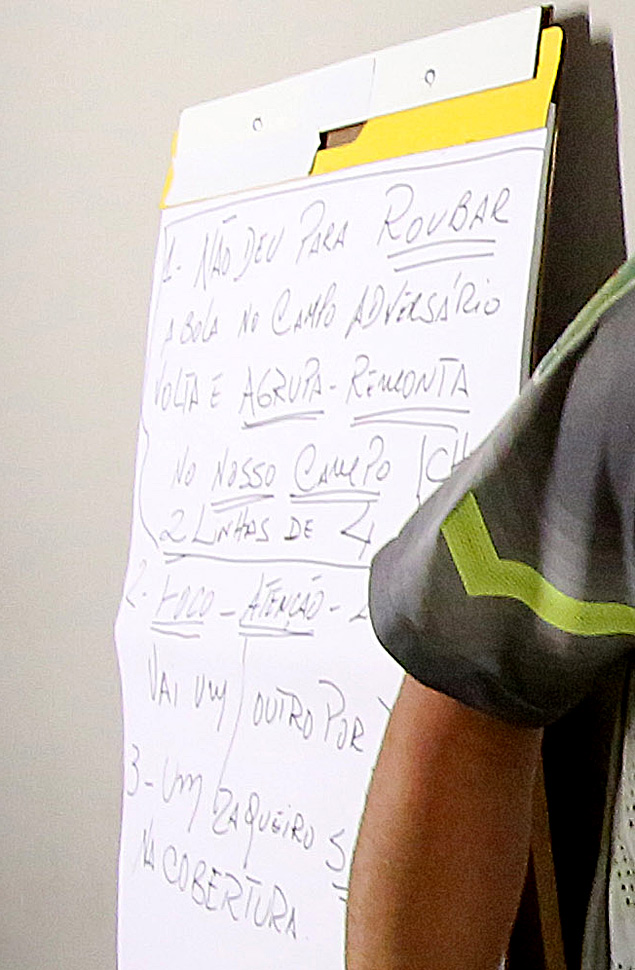 1- NÃO DEU PARA ROUBAR
A BOLA NO CAMPO ADVERSÁRIO
VOLTA E AGRUPA - REMONTA
NO NOSSO CAMPO
2 LINHAS DE 4
2- FOCO - ATENÇÃO -
VAI UM / OUTRO POR
3- UM ZAQUEIRO S
NA COBERTURA.